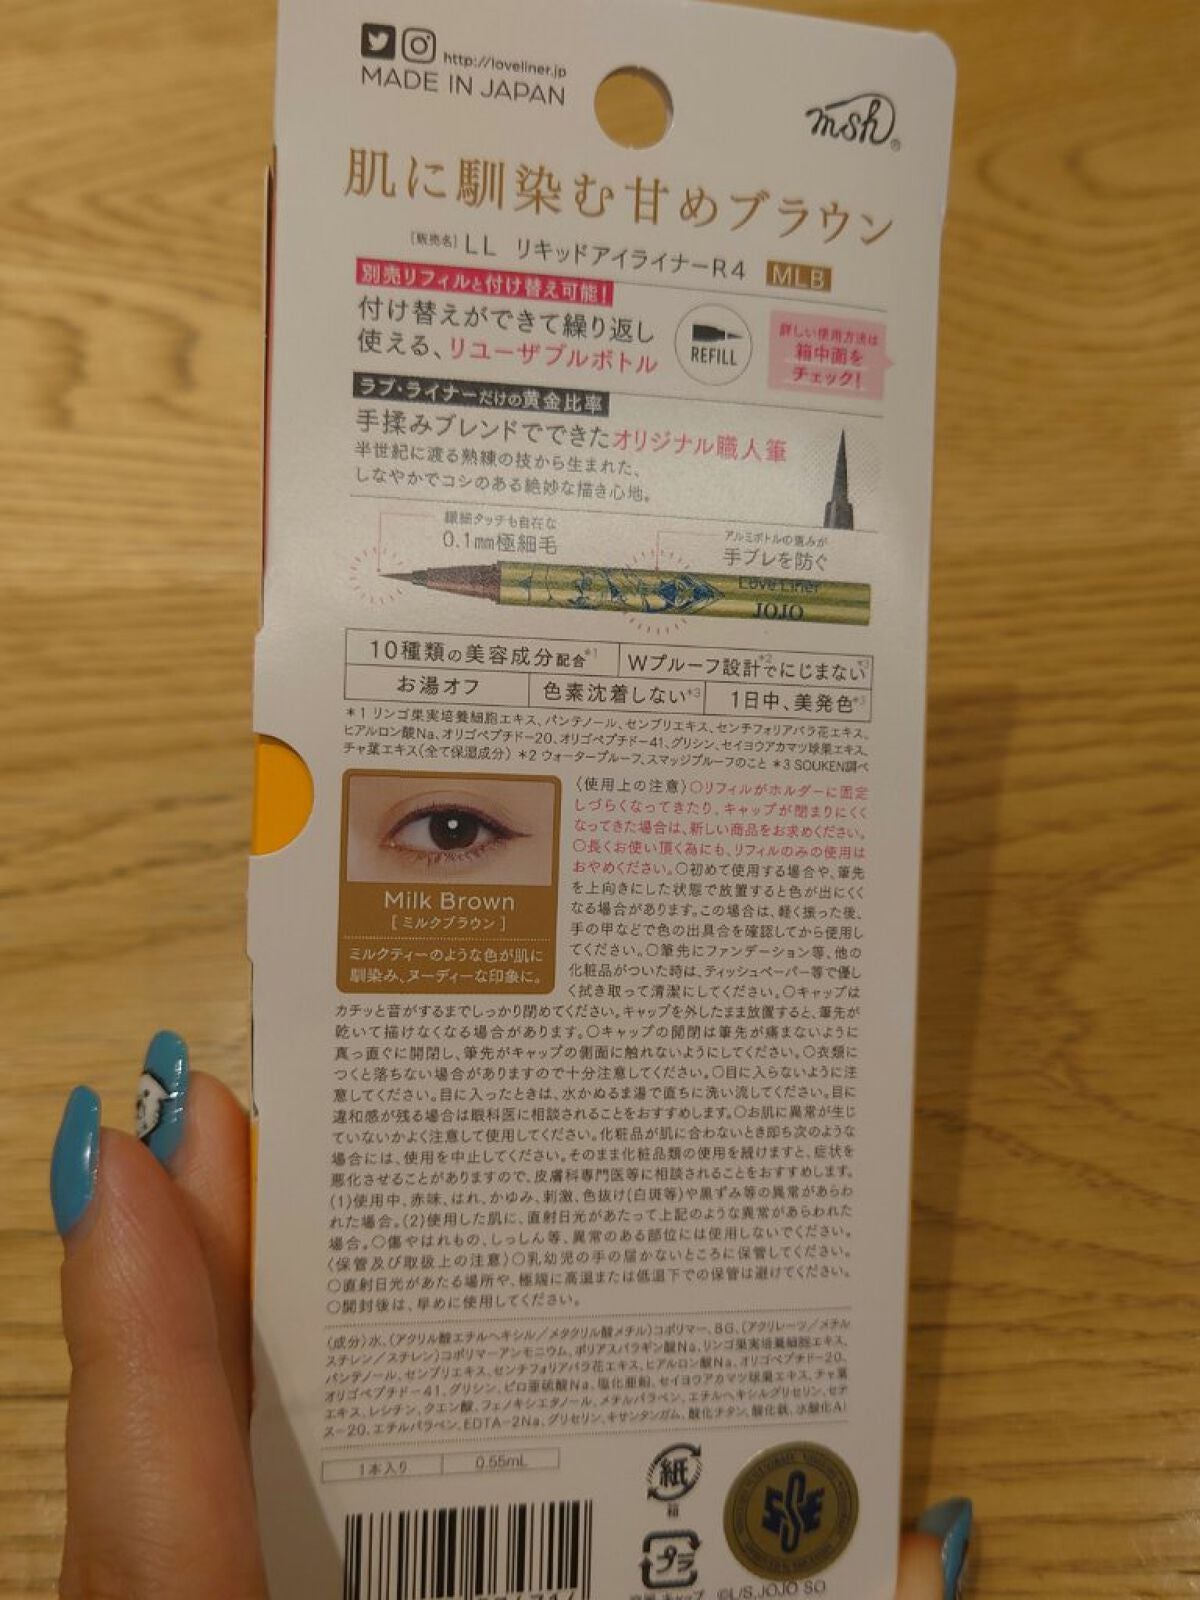 http://loveliner.jp
MADE IN JAPAN
msh®
肌に馴染む甘めブラウン
[販売名] LL リキッドアイライナーR4 MLB
別売リフィルと付け替え可能!
付け替えができて繰り返し
使える、リユーザブルボトル
REFILL
詳しい使用方法は
箱中面を
チェック!
ラブ・ライナーだけの黄金比率
手揉みブレンドでできたオリジナル職人筆
半世紀に渡る熟練の技から生まれた、
しなやかでコシのある絶妙な描き心地。
繊細タッチも自在な
0.1mm極細毛
アルミボトルの重みが
手ブレを防ぐ
Love Liner
JOJO
10種類の美容成分配合*1
Wプルーフ設計*2でにじまない*3
お湯オフ
色素沈着しない*3
1日中、美発色*3
*1 リンゴ果実培養細胞エキス、パンテノール、センブリエキス、センチフォリアバラ花エキス、
ヒアルロン酸Na、オリゴペプチド-20、オリゴペプチド-41、グリシン、セイヨウアカマツ球果エキス、
チャ葉エキス(全て保湿成分) *2 ウォータープルーフ、スマッジプルーフのこと *3 SOUKEN調べ
Milk Brown
[ミルクブラウン]
ミルクティーのような色が肌に
馴染み、ヌーディーな印象に。
〈使用上の注意〉○リフィルがホルダーに固定
しづらくなってきたり、キャップが閉まりにくく
なってきた場合は、新しい商品をお求めください。
○長くお使い頂く為にも、リフィルのみの使用は
おやめください。○初めて使用する場合や、筆先
を上向きにした状態で放置すると色が出にくく
なる場合があります。この場合は、軽く振った後、
手の甲などで色の出具合を確認してから使用し
てください。○筆先にファンデーション等、他の
化粧品がついた時は、ティッシュペーパー等で優し
く拭き取って清潔にしてください。○キャップは
カチッと音がするまでしっかり閉めてください。キャップを外したまま放置すると、筆先が
乾いて描けなくなる場合があります。○キャップの開閉は筆先が痛まないように
真っ直ぐに開閉し、筆先がキャップの側面に触れないようにしてください。○衣類に
つくと落ちない場合がありますので十分注意してください。○目に入らないように注
意してください。目に入ったときは、水かぬるま湯で直ちに洗い流してください。目に
違和感が残る場合は眼科医に相談されることをおすすめします。○お肌に異常が生じ
ていないかよく注意して使用してください。化粧品が肌に合わないとき即ち次のような
場合には、使用を中止してください。そのまま化粧品類の使用を続けますと、症状を
悪化させることがありますので、皮膚科専門医等に相談されることをおすすめします。
(1)使用中、赤味、はれ、かゆみ、刺激、色抜け(白斑等)や黒ずみ等の異常があらわ
れた場合。(2)使用した肌に、直射日光があたって上記のような異常があらわれた
場合。○傷やはれもの、しっしん等、異常のある部位には使用しないでください。
〈保管及び取扱上の注意〉○乳幼児の手の届かないところに保管してください。
○直射日光があたる場所や、極端に高温または低温下での保管は避けてください。
○開封後は、早めに使用してください。
〈成分〉水、(アクリル酸エチルヘキシル/メタクリル酸メチル)コポリマー、BG、(アクリレーツ/メチル
スチレン/スチレン)コポリマーアンモニウム、ポリアスパラギン酸Na、リンゴ果実培養細胞エキス、
パンテノール、センブリエキス、センチフォリアバラ花エキス、ヒアルロン酸Na、オリゴペプチド-20、
オリゴペプチド-41、グリシン、ピロ亜硫酸Na、塩化亜鉛、セイヨウアカマツ球果エキス、チャ葉
エキス、レシチン、クエン酸、フェノキシエタノール、メチルパラベン、エチルヘキシルグリセリン、セテ
ス-20、エチルパラベン、EDTA-2Na、グリセリン、キサンタンガム、酸化チタン、酸化鉄、水酸化Al
1本入り
0.55mL
紙
箱
プラ
SSE
©L/S,JOJO SO